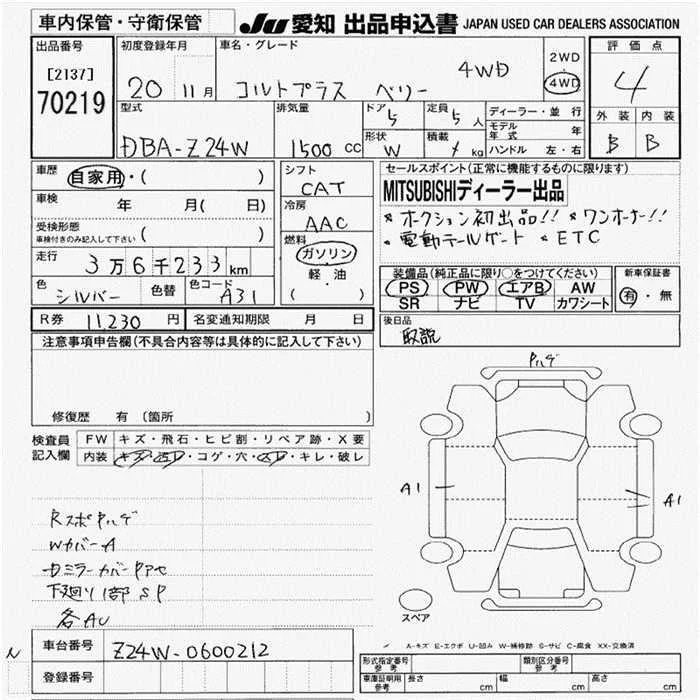 車内保管・守衛保管
JU 愛知 出品申込書 JAPAN USED CAR DEALERS ASSOCIATION
出品番号 初度登録年月 車名・グレード 2WD 評価点
[2137] 20 11月 コルトプラス ベリー 4WD 4WD 4
70219 型式 排気量 ドア 5 定員 5人 ディーラー・並行 外装 内装
DBA-Z24W 1500 cc 形状 W 積載 kg モデル年式 年 B B
ハンドル 左・右
車歴 自家用・( ) シフト CAT セールスポイント(正常に機能するものに限ります)
車検 年 月( 日) 冷房 AAC MITSUBISHIディーラー出品
受検形態 車検付きのみ記入して下さい ( ) 燃料 ガソリン 軽油 ( ) *オクション初出品!! *ワンオーナー!!
*電動テールゲート *ETC
走行 3万6千233km
色 シルバー 色替 色コード A31
装備品(純正品に限り○をつけてください) 新車保証書
PS PW エアB AW 有・無
SR ナビ TV カワシート
R券 11,230 円 名変通知期限 月 日 後日品
取説
注意事項申告欄(不具合内容等は具体的に記入して下さい)
修復歴 有 〔箇所 〕
検査員記入欄 FW キズ・飛石・ヒビ割・リペア跡・X要
内装 キズ・汚れ・コゲ・穴・スレ・キレ・破レ
Pハゲ
A1 A1
RスポPハゲ
WカバーA
DミラーカバーPアセ
下廻り1部SP
各AU
スペア
A-キズ E-エクボ U-凹み W-補修跡 S-サビ C-腐食 XX-交換済
N 車台番号 Z24W-0600212
登録番号
形式指定番号 参考 類別区分番号 参考
車庫証明用 参考 長さ cm 幅 cm 高さ cm